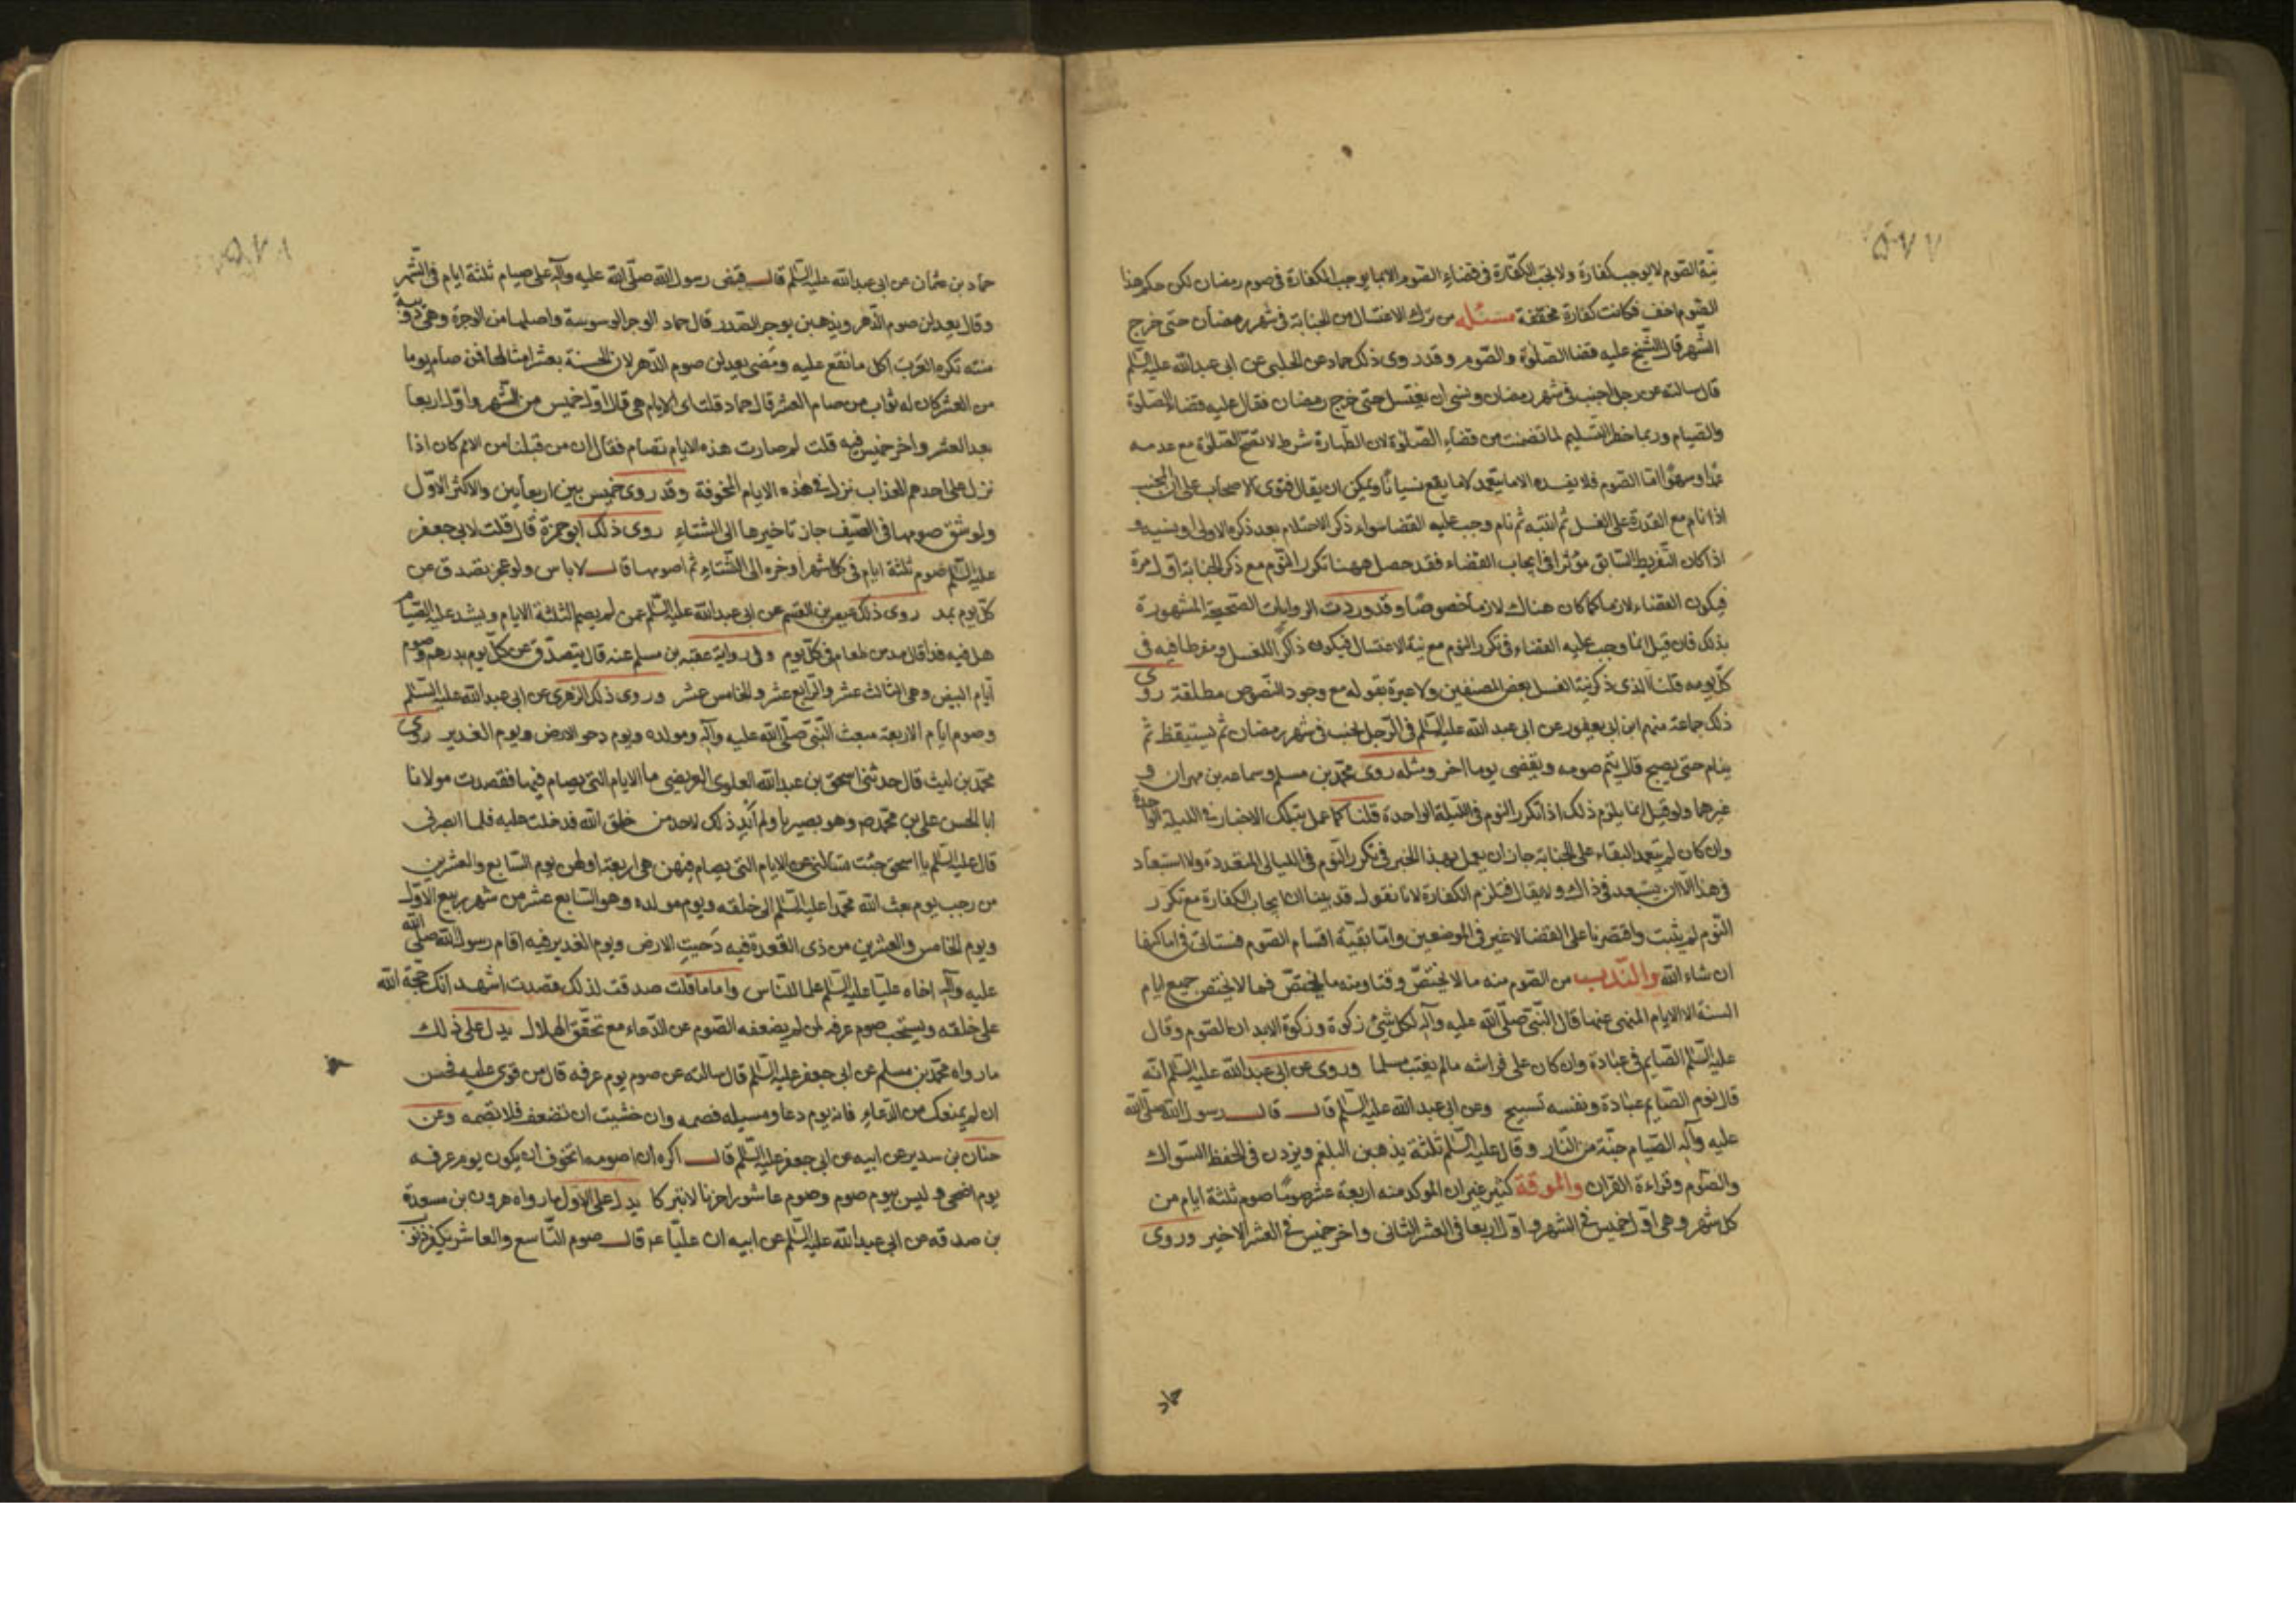 ٥٧٧
نية الصوم لا يوجب كفارة ولا يجب الكفارة في قضاء الصوم الا بما يوجب الكفارة في صوم رمضان لكن حكم هذا
الصوم اخف فكانت كفارة مخففة مسئله من ترك الاغتسال من الجنابة في شهر رمضان حتى خرج
الشهر قال الشيخ عليه قضا الصلوة والصوم وقد روى ذلك حماد عن الحلبي عن ابي عبد الله عليه السلم
قال سالته عن رجل اجنب في شهر رمضان ونسى ان يغتسل حتى خرج رمضان فقال عليه قضاء الصلوة
والصيام وربما خطر التسليم لما تضمنت من قضاء الصلوة لان الطهارة شرط لا تصح الصلوة مع عدمه
عمدا وسهوا اما الصوم فلا يفسده الا ما يتعمد لا ما يقع نسيانا ويمكن ان يقال فتوى الاصحاب على ان المجنب
اذا نام مع القدرة على الغسل ثم انتبه ثم نام وجب عليه القضا سواء ذكر الاحتلام بعد ذكره الاولى او نسيه و
اذا كان التفريط السابق مؤثرا في ايجاب القضاء فقد حصل ههنا تكرر النوم مع ذكر الجنابة اول مرة
فيكون القضاء لازما كما كان هناك لازما خصوصا وقد وردت الروايات الصحيحة المشهورة
بذلك فان قيل انما وجب عليه القضاء في تكرر النوم مع نية الاغتسال فيكون ذاكرا للغسل ومفرطا فيه في
كل يومه قلنا الذي ذكر نية الغسل بعض المصنفين ولا عبرة بقوله مع وجود النصوص مطلقة روى
ذلك جماعة منهم ابن ابي يعفور عن ابي عبد الله عليه السلم في الرجل يجنب في شهر رمضان ثم يستيقظ ثم
ينام حتى يصبح قال يتم صومه ويقضى يوما اخر ومثله روى محمد بن مسلم وسماعه بن مهران و
غيرهما ولو قيل انما يلزم ذلك اذا تكرر النوم في الليلة الواحدة قلنا كما عمل بتلك الاخبار في الليلة الواحدة
وان كان لم يتعمد البقاء على الجنابة جاز ان يعمل بهذا الخبر في تكرر النوم في الليالي المتعددة ولا استبعاد
في هذا الا ان يستبعد في ذاك ولا يقال فيلزم الكفارة لانا نقول قد بينا ان ايجاب الكفارة مع تكرر
النوم لم يثبت واقتصرنا على القضا لا غير في الموضعين واما بقية اقسام الصوم فستاتي في اماكنها
ان شاء الله والندب من الصوم منه ما لا يختص وقتا ومنه ما يختص فما لا يختص جميع ايام
السنة الا الايام المنهى عنها قال النبي صلى الله عليه وآله لكل شئ زكوة وزكوة الابدان الصوم وقال
عليه السلم الصايم في عبادة وان كان على فراشه ما لم يغتب مسلما وروى عن ابي عبد الله عليه السلم انه
قال نوم الصايم عبادة ونفسه تسبيح وعن ابي عبد الله عليه السلم قال قال رسول الله صلى الله
عليه وآله الصيام جنة من النار وقال عليه السلم ثلثة يذهبن البلغم ويزدن في الحفظ السواك
والصوم وقراءة القران والموقة كثير غير ان الموكد منه اربعة عشر صوما صوم ثلثة ايام من
كل شهر وهي اول خميس في الشهر واول اربعا في العشر الثاني واخر خميس في العشر الاخير وروى
حماد
٥٧٨
حماد بن عثمان عن ابي عبد الله عليه السلم قال قبض رسول الله صلى الله عليه وآله على صيام ثلثة ايام في الشهر
وقال يعدلن صوم الدهر ويذهبن بوحر الصدر قال حماد الوحر الوسوسة واصلها من الوحرة وهي دويبة
منتنة تكره العرب اكل ما تقع عليه ومضى يعدلن صوم الدهر لان الحسنة بعشر امثالها فمن صام يوما
من العشر كان له ثواب من صام العشر قال حماد قلت اى الايام هي قال اول خميس من الشهر واول اربعا
بعد العشر واخر خميس فيه قلت لم صارت هذه الايام تصام فقال ان من قبلنا من الامم كان اذا
نزل على احدهم العذاب نزل في هذه الايام المخوفة وقد روى خميس بين اربعاين والاكثر الاول
ولو شق صومها في الصيف جاز تاخيرها الى الشتاء روى ذلك ابو حمزة قال قلت لابي جعفر
عليه السلم صوم ثلثة ايام في كل شهر اوخره الى الشتاء ثم اصومها قال لا باس ولو عجز تصدق عن
كل يوم بمد روى ذلك عيص بن القسم عن ابي عبد الله عليه السلم عمن لم يصم الثلثة الايام ويشتد عليه الصيام
هل فيه فدا قال مد من طعام في كل يوم وفي رواية عقبه بن مسلم عنه قال يتصدق عن كل يوم بدرهم وصوم
ايام البيض وهي الثالث عشر والرابع عشر والخامس عشر وروى ذلك الزهري عن ابي عبد الله عليه السلم
وصوم ايام الاربعة مبعث النبي صلى الله عليه وآله ومولده ويوم دحو الارض ويوم الغدير روى
محمد بن ليث قال حدثني اسحق بن عبد الله العلوي العريضي ما الايام التي يصام فيها فقصدت مولانا
ابا الحسن علي بن محمد وهو بصيريا ولم ابد ذلك لاحد من خلق الله فدخلت عليه فلما ابصرني
قال عليه السلم يا اسحق جئت تسالني عن الايام التي يصام فيهن هي اربعة اولهن يوم السابع والعشرين
من رجب يوم بعث الله محمدا عليه السلم الى خلقه ويوم مولده وهو السابع عشر من شهر ربيع الاول
ويوم الخامس والعشرين من ذي القعدة فيه دحيت الارض ويوم الغدير فيه اقام رسول الله صلى الله
عليه وآله اخاه عليا عليه السلم علما للناس واماما قلت صدقت لذلك قصدت اشهد انك حجة الله
على خلقه ويستحب صوم عرفه لمن لم يضعفه الصوم عن الدعاء مع تحقق الهلال يدل على ذلك
ما رواه محمد بن مسلم عن ابي جعفر عليه السلم قال سالته عن صوم يوم عرفه قال من قوى عليه فحسن
ان لم يمنعك من الدعاء فانه يوم دعا ومسيله فصمه وان خشيت ان تضعف فلا تصمه وعن
حنان بن سدير عن ابيه عن ابي جعفر عليه السلم قال اكره ان اصومه اتخوف ان يكون يوم عرفه
يوم اضحى وليس بيوم صوم وصوم عاشورا حزنا لا تبركا يدل على الاول ما رواه هرون بن مسعدة
بن صدقه عن ابي عبد الله عليه السلم عن ابيه ان عليا قال صوم التاسع والعاشر يكفر ذنوب